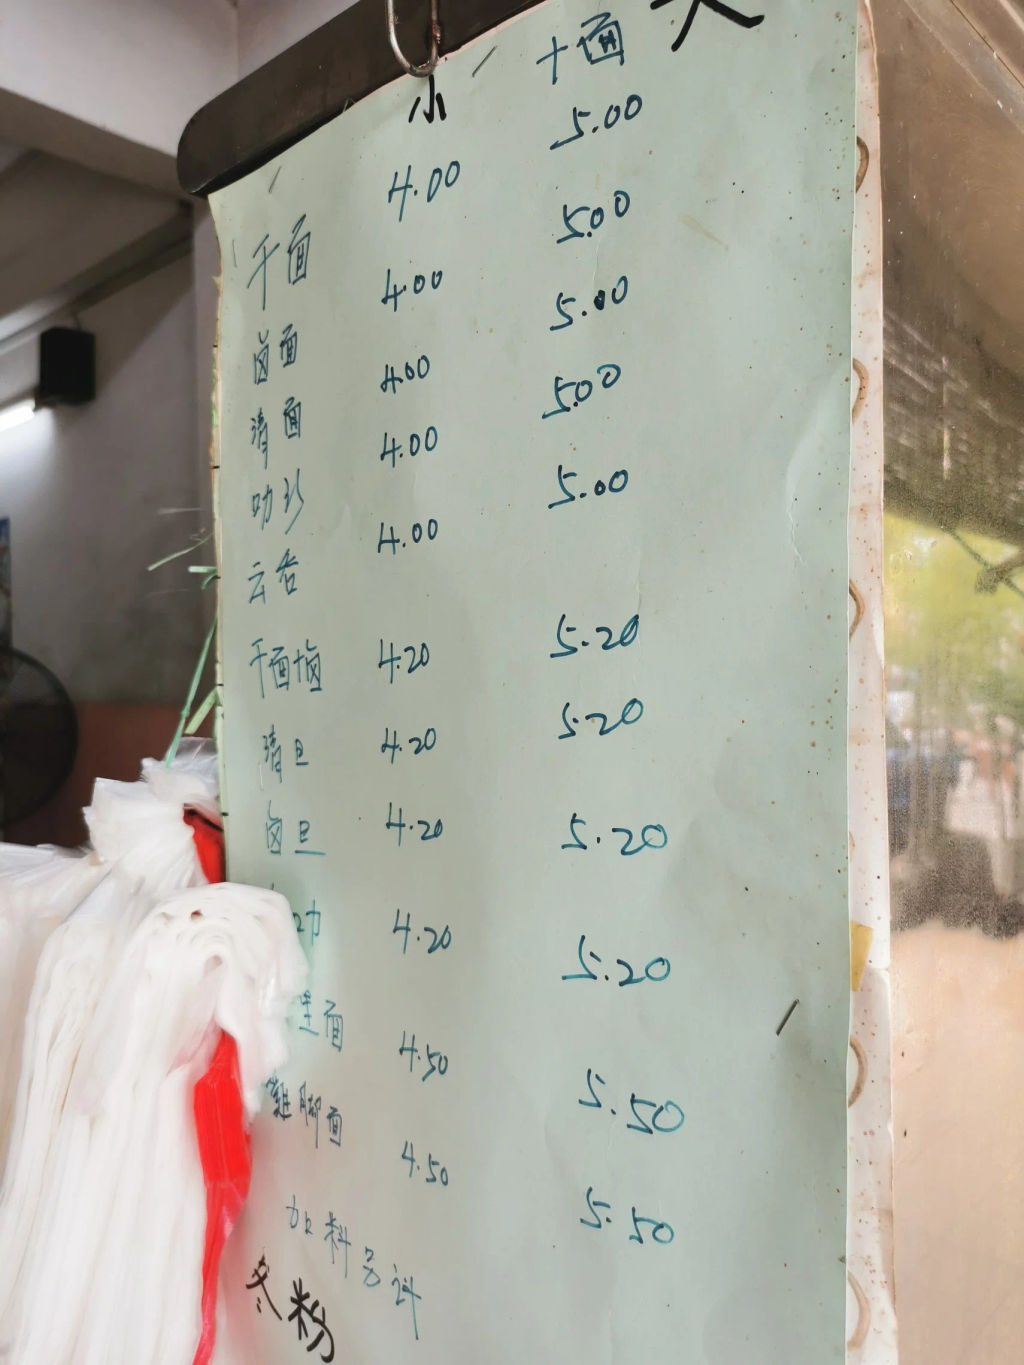 小 十面 大
干面 4.00 5.00
卤面 4.00 5.00
清面 4.00 5.00
叻沙 4.00 5.00
云吞 4.00 5.00
干面卤 4.20 5.20
清旦 4.20 5.20
卤旦 4.20 5.20
叻 4.20 5.20
面 4.50 5.50
雞脚面 4.50 5.50
加料另计
冬粉